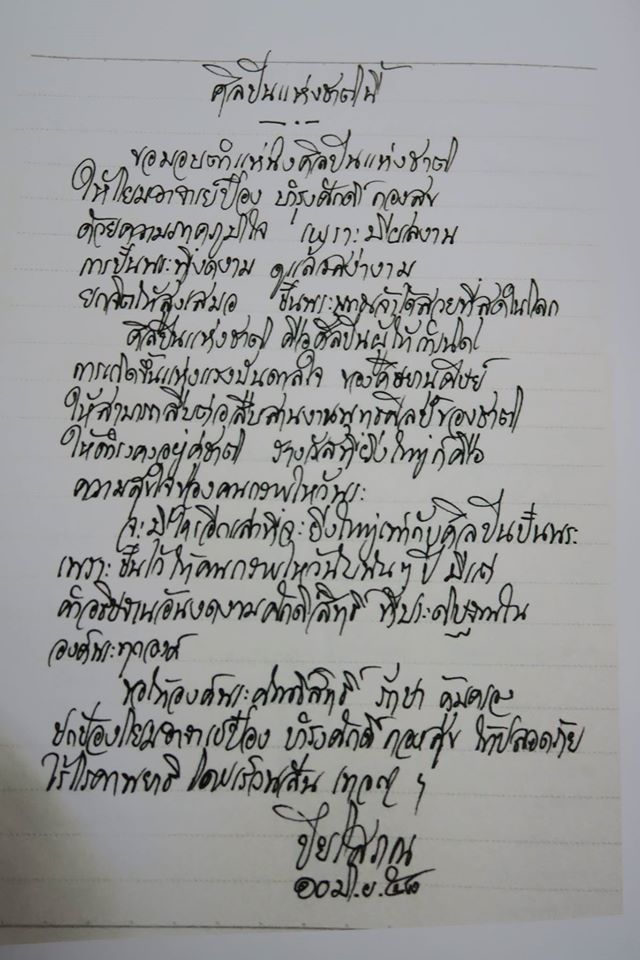 ศิลปินแห่งชาตินี้
ขอมอบตำแหน่งศิลปินแห่งชาติ
ให้โยมอาจารย์ป๋อง บำรุงศักดิ์ กองสุข
ด้วยความภาคภูมิใจ เพราะมีผลงาน
การปั้นพระที่งดงาม ดูแล้วสง่างาม
ยกจิตให้สูงเสมอ ปั้นพระ ได้สวยที่สุดในโลก
ศิลปินแห่งชาติ คือศิลปินผู้ให้กำเนิด
การเกิดขึ้นแห่งแรงบันดาลใจ ของศิษยานุศิษย์
ให้สามารถสืบต่อสืบสานงานพุทธศิลป์ของชาติ
ให้ดำรงคงอยู่คู่ชาติ รางวัลที่ยิ่งใหญ่ก็คือ
ความสุขใจของคนกราบไหว้พระ
จะมีใครอีกเล่าที่จะยิ่งใหญ่เท่ากับศิลปินปั้นพระ
เพราะปั้นไว้ให้คนกราบไหว้นับพันๆ ปี มีแต่
คำอธิษฐานอันงดงามศักดิ์สิทธิ์ ที่ประดิษฐานใน
องค์พระทุกองค์
ขอให้องค์พระศักดิ์สิทธิ์ รักษา คุ้มครอง
ปกป้องโยมอาจารย์ป๋อง บำรุงศักดิ์ กองสุข ให้ปลอดภัย
ไร้โรคาพยาธิ โดยเร็วพลัน เทอญ ฯ
ปิยโสภณ
๑๐ มิ.ย. ๕๘